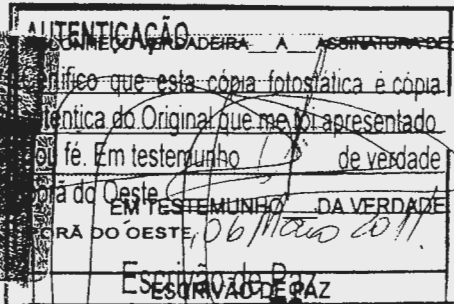 AUTENTICAÇÃO
CONHEÇO VERDADEIRA A ASSINATURA DE
que esta cópia fotostática e cópia
do Original que me foi apresentado
fé. Em testemunho de verdade
do Oeste
EM TESTEMUNHO DA VERDADE
RÃ DO OESTE, 06 Maio 2011.
Escrivão de Paz
ESCRIVÃO DE PAZ